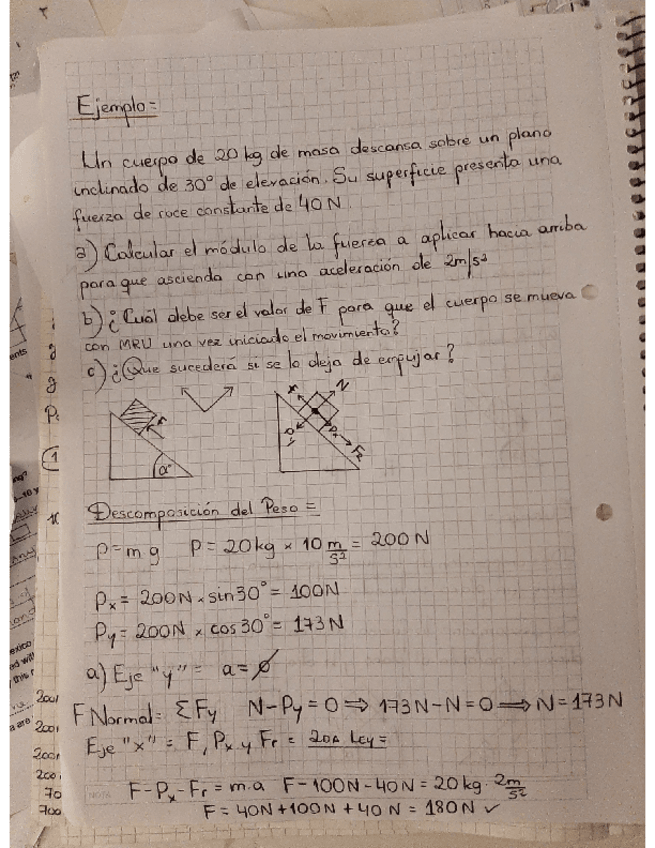 Ejemplo=
Un cuerpo de 20 kg de masa descansa sobre un plano
inclinado de 30° de elevación. Su superficie presenta una
fuerza de roce constante de 40 N.
a) Calcular el módulo de la fuerza a aplicar hacia arriba
para que ascienda con una aceleración de 2m/s²
b) ¿Cuál debe ser el valor de F para que el cuerpo se mueva
con MRU una vez iniciado el movimiento?
c) ¿Que sucederá si se lo deja de empujar?
F
x
N
Px
Fr
α
Descomposición del Peso=
P=m g P= 20kg × 10 m/s² = 200 N
Px = 200N × sin30° = 100N
Py = 200N × cos30° = 173N
a) Eje "y" = a = 0
F Normal= ΣFy N-Py = 0 ⇒ 173N-N=0 ⇒ N=173N
Eje "x" = F, Px y Fr = 2da Ley=
F-Px-Fr = m.a F-100N-40N = 20kg . 2m/s²
F = 40N+100N+40N = 180N ✓
NOTA